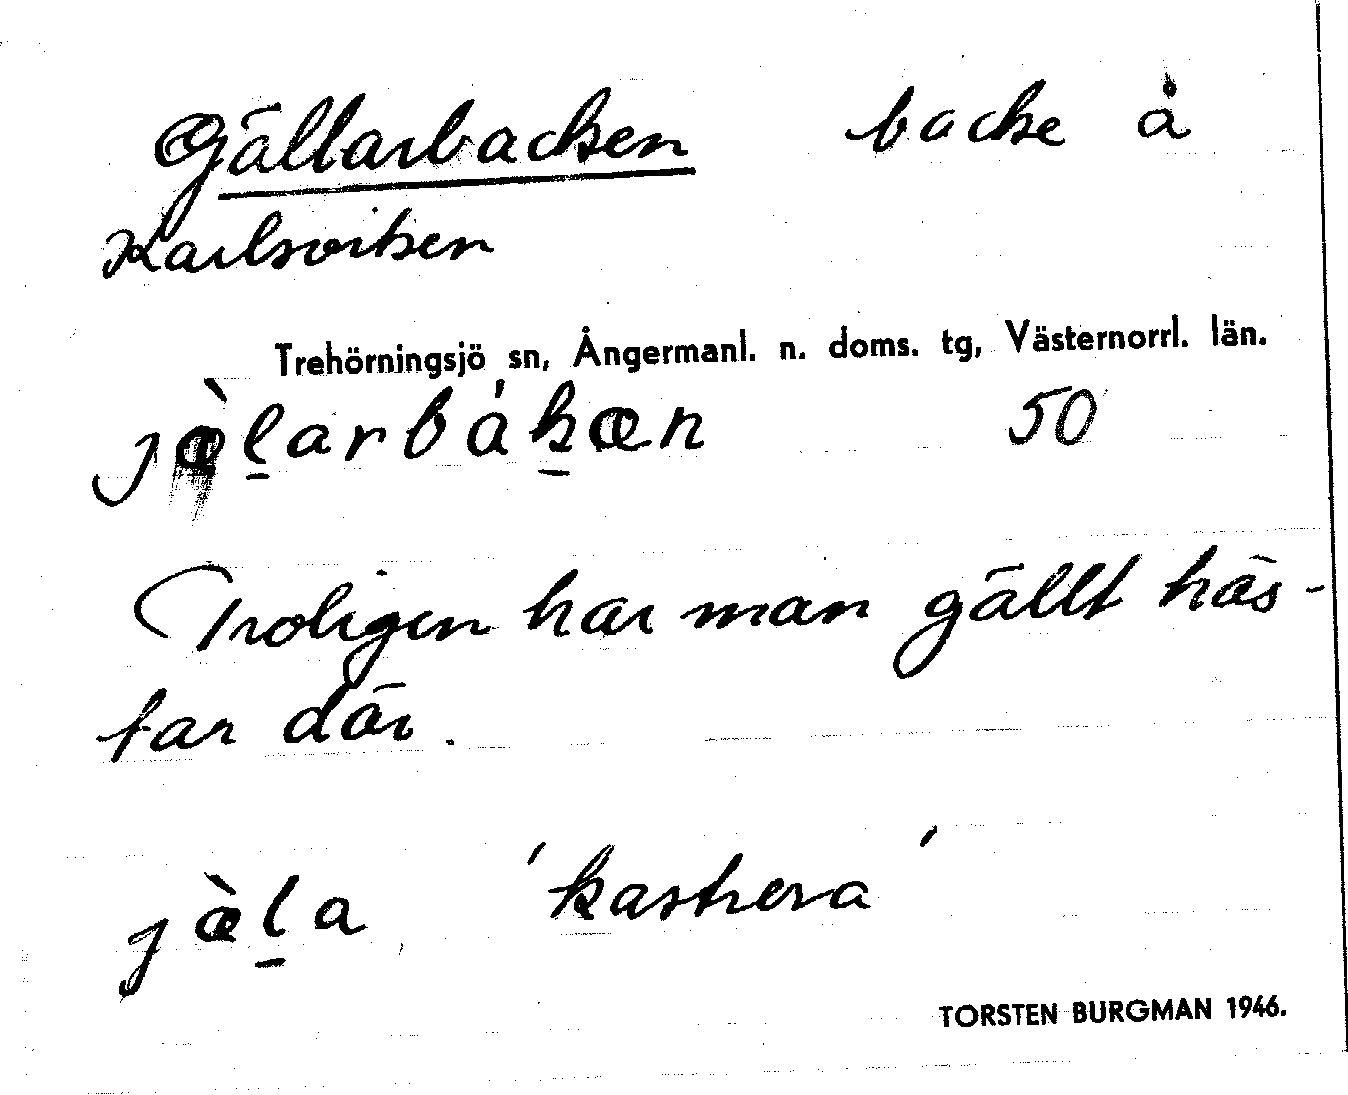 Gällarbacken backe å
Karlsviken
Trehörningsjö sn, Ångermanl. n. doms. tg, Västernorrl. län.
jæ̀l̲arbák̲æn 50
Troligen har man gällt häs-
tar där.
jæ̀l̲a 'kastrera'
TORSTEN BURGMAN 1946.